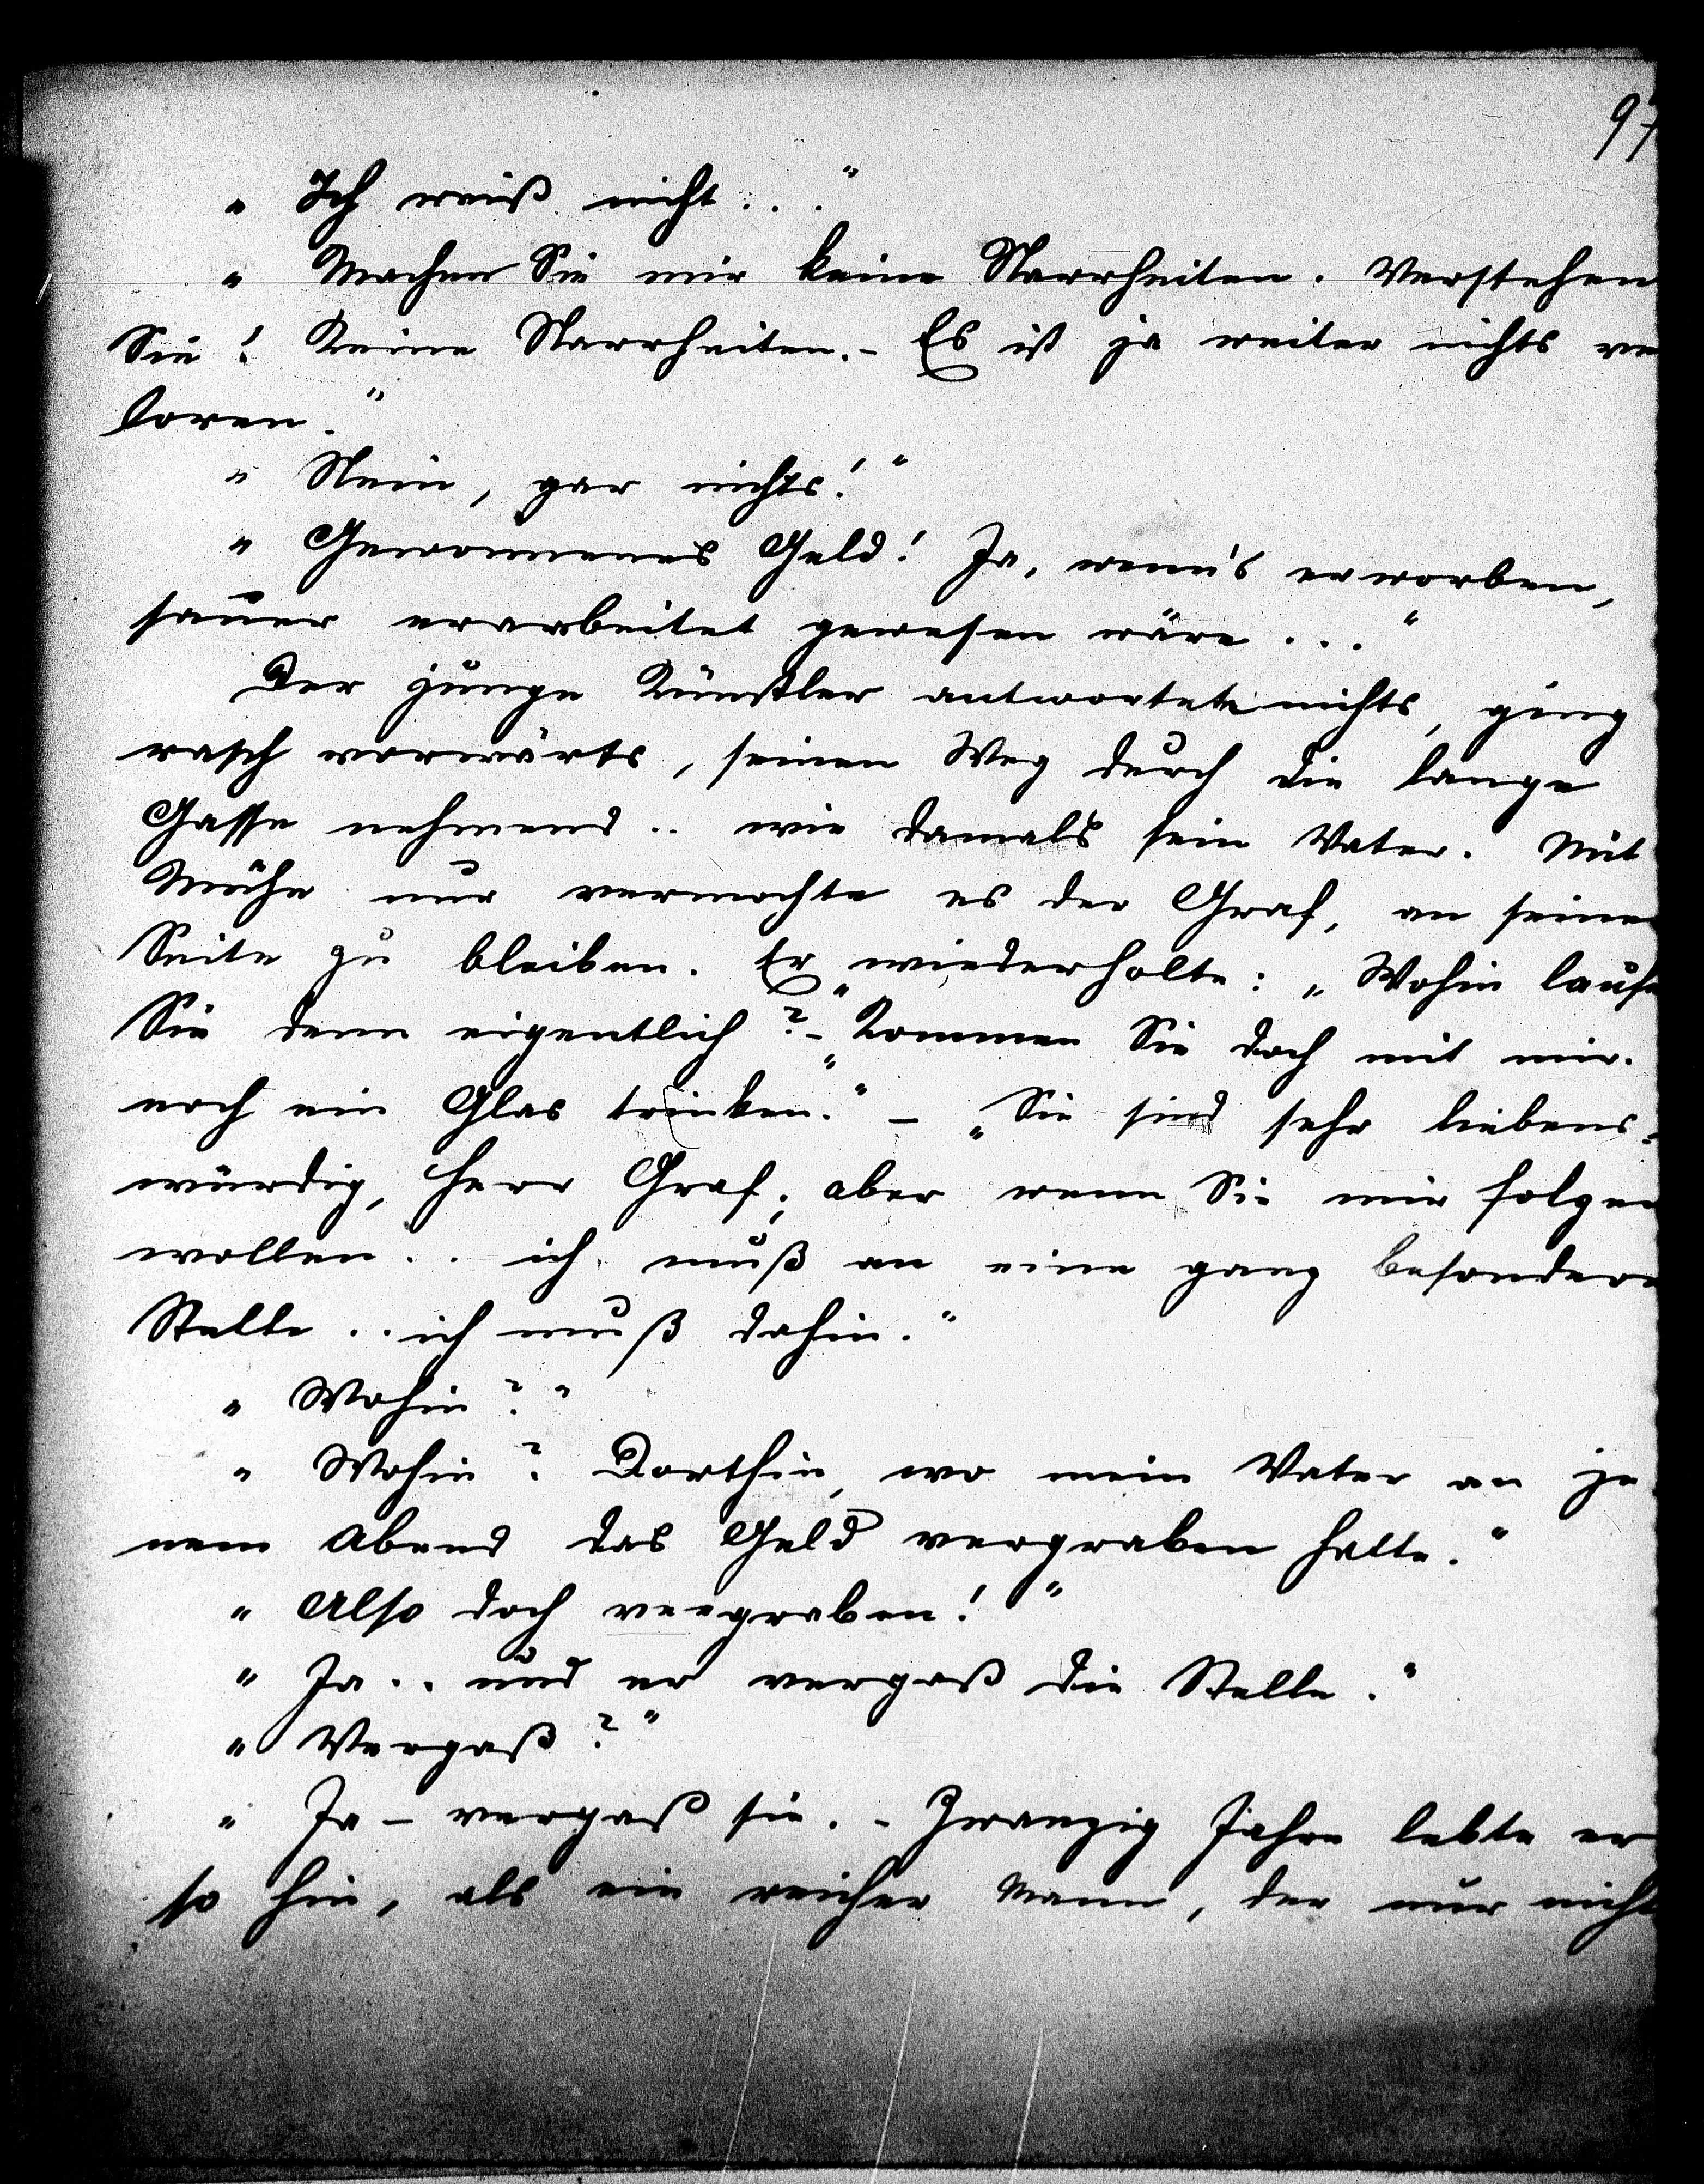 97
„Ich weiß nicht..."
„Machen Sie mir keine Narrheiten. Verstehen
Sie! Keine Narrheiten. – Es ist ja weiter nichts ver
loren."
„Nein, gar nichts!"
„Gewonnenes Geld! Ja, wenn's erworben,
sauer erarbeitet gewesen wäre..."
Der junge Künstler antwortete nichts, ging
rasch vorwärts, seinen Weg durch die lange
Gasse nehmend.. wie damals sein Vater. Mit
Mühe nur vermochte es der Graf, an seiner
Seite zu bleiben. Er wiederholte: „Wohin laufen
Sie denn eigentlich?" – „Kommen Sie doch mit mir.
noch ein Glas trinken." – „Sie sind sehr liebens-
würdig, Herr Graf; aber wenn Sie mir folgen
wollen.. ich muß an eine ganz besondere
Stelle.. ich muß dahin."
„Wohin?"
„Wohin? Dorthin, wo mein Vater an je
nem Abend das Geld vergraben hatte."
„Also doch vergraben!"
„Ja.. und er vergaß die Stelle."
„Vergaß?"
„Ja – vergaß sie. – Zwanzig Jahre lebte er
so hin, als ein reicher Mann, der nur nicht